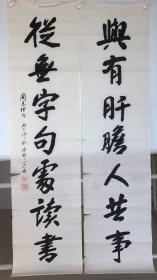 與有肝膽人共事
從無字句處讀書